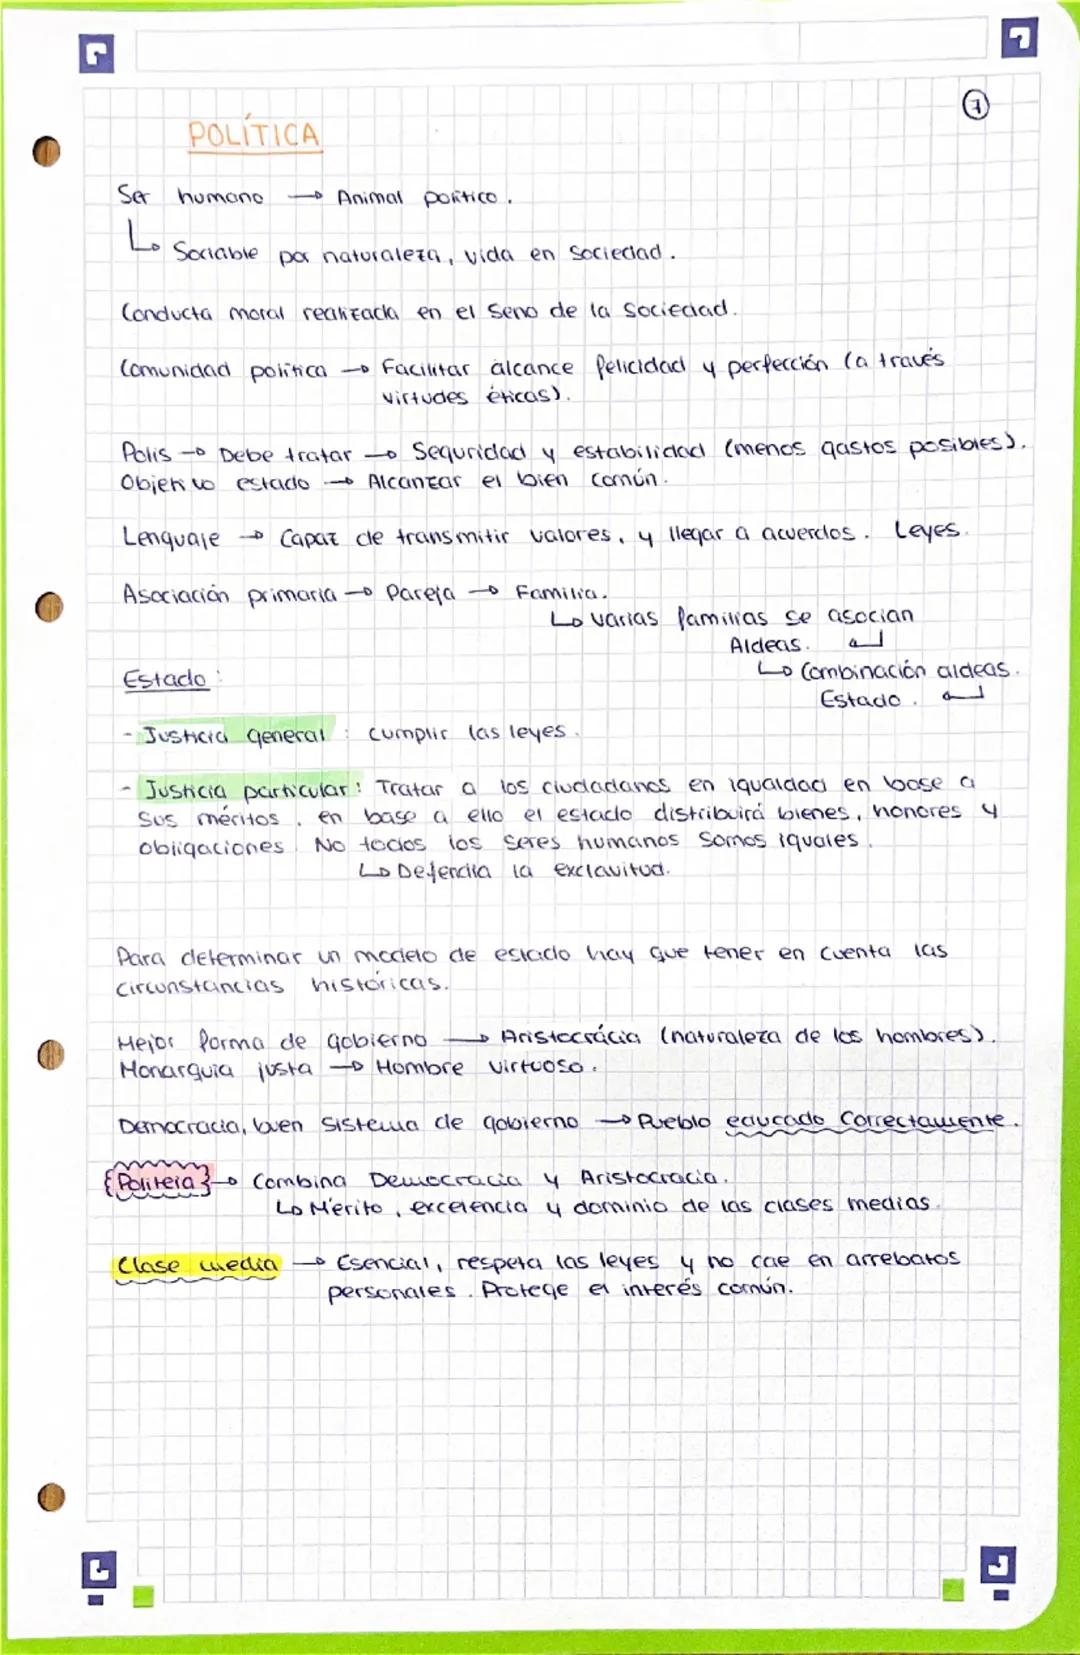 7
POLÍTICA
Ser humano → Animal político.
↳ Sociable por naturaleza, vida en Sociedad.
Conducta moral realizada en el seno de la sociedad.
Comunidad política → Facilitar alcance felicidad y perfección (a través
virtudes éticas).
Polis → Debe tratar → Seguridad y estabilidad (menos gastos posibles).
Objetivo estado → Alcanzar el bien común.
Lenguaje → Capaz de transmitir valores, y llegar a acuerdos. Leyes.
Asociación primaria → Pareja → Familia.
↳ varias familias se asocian
Aldeas. ↲
↳ Combinación aldeas.
Estado. ↲
Estado:
- Justicia general: cumplir las leyes.
- Justicia particular: Tratar a los ciudadanos en igualdad en base a
sus méritos, en base a ello el estado distribuirá bienes, honores y
obligaciones. No todos los seres humanos somos iguales.
↳ Defendía la exclavitud.
Para determinar un modelo de estado hay que tener en cuenta las
circunstancias históricas.
Mejor forma de gobierno → Aristocrácia (naturaleza de los hombres).
Monarquía justa → Hombre virtuoso.
Democracia, buen sistema de gobierno → Pueblo educado correctamente.
{Politeia} → Combina Democracia y Aristocracia.
↳ Mérito, excelencia y dominio de las clases medias.
Clase media → Esencial, respeta las leyes y no cae en arrebatos
personales. Protege el interés común.